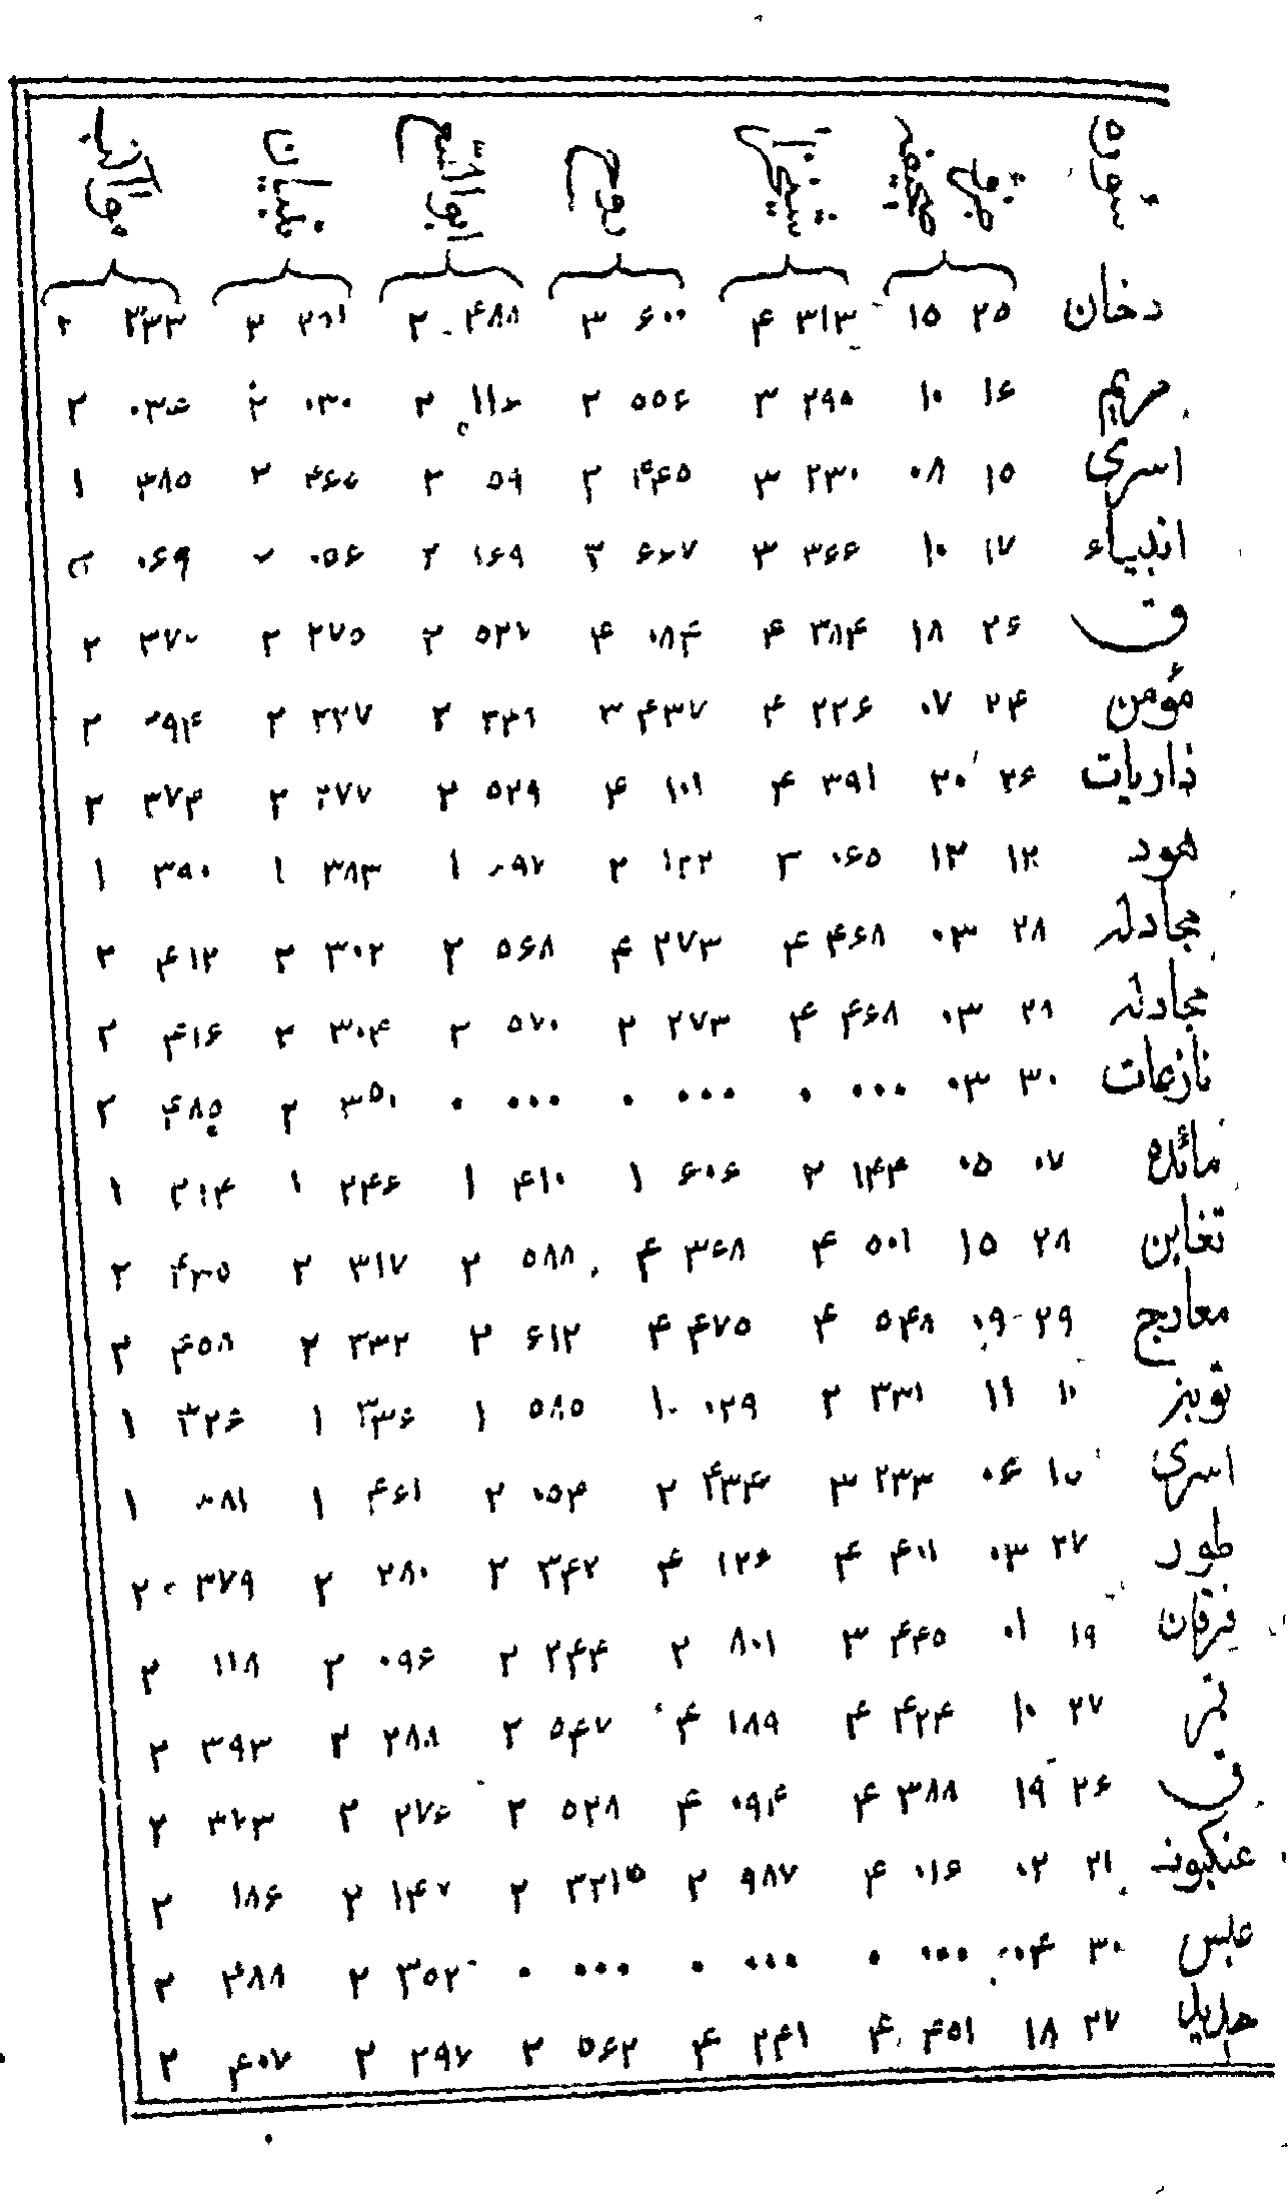 سوره جزو صحیفه شیخزاده روح ابوالسعود تبیان مواکب
دخان ۲۵ ۱۵ ۳۱۳ ۴ ۶۰۰ ۳ ۴۸۸ ۲ ۲۶۱ ۲ ۲۳۳ ۲
مریم ۱۶ ۱۰ ۲۹۵ ۳ ۵۵۶ ۲ ۱۱۶ ۲ ۰۳۰ ۲ ۰۳۴ ۲
اسری ۱۵ ۰۸ ۲۳۰ ۳ ۴۶۵ ۲ ۵۹ ۲ ۴۶۶ ۲ ۳۸۵ ۱
انبیاء ۱۷ ۱۰ ۳۶۶ ۳ ۶۶۷ ۲ ۱۶۹ ۲ ۰۵۶ ۲ ۰۶۹ ۲
ق ۲۶ ۱۸ ۳۸۴ ۴ ۰۸۴ ۴ ۵۲۷ ۲ ۲۷۵ ۲ ۳۷۰ ۲
مؤمن ۲۴ ۰۷ ۲۲۶ ۴ ۴۳۷ ۳ ۴۳۶ ۲ ۲۲۷ ۲ ۲۹۴ ۲
ذاریات ۲۶ ۲۰ ۳۹۱ ۴ ۱۰۱ ۴ ۵۲۹ ۲ ۲۷۷ ۲ ۳۷۳ ۲
هود ۱۲ ۱۳ ۰۶۵ ۳ ۱۲۲ ۲ ۰۹۷ ۱ ۳۸۳ ۱ ۳۹۰ ۱
مجادله ۲۸ ۰۳ ۴۶۸ ۴ ۲۷۳ ۴ ۵۶۸ ۲ ۳۰۲ ۲ ۴۱۲ ۲
مجادله ۲۸ ۰۳ ۴۶۸ ۴ ۲۷۳ ۲ ۵۷۰ ۲ ۳۰۴ ۲ ۴۱۶ ۲
نازعات ۳۰ ۰۳ ۰۰۰ ۰ ۰۰۰ ۰ ۰۰۰ ۰ ۳۵۰ ۲ ۴۸۵ ۲
مائده ۰۷ ۰۵ ۱۴۴ ۲ ۶۰۶ ۱ ۴۱۰ ۱ ۲۴۶ ۱ ۲۱۴ ۱
تغابن ۲۸ ۱۵ ۵۰۱ ۴ ۳۶۸ ۴ ۵۸۸ ۲ ۳۱۷ ۲ ۴۳۵ ۲
معارج ۲۹ ۰۹ ۵۴۸ ۴ ۴۷۵ ۴ ۶۱۲ ۲ ۳۳۲ ۲ ۴۵۸ ۲
توبه ۱۰ ۱۱ ۳۳۱ ۲ ۰۲۹ ۱۰ ۵۸۵ ۱ ۳۳۶ ۱ ۳۲۶ ۱
اسری ۱۵ ۰۶ ۲۳۳ ۳ ۴۳۴ ۲ ۰۵۴ ۲ ۴۶۱ ۱ ۰۸۱ ۱
طور ۲۷ ۰۳ ۴۰۱ ۴ ۱۲۶ ۴ ۳۴۲ ۲ ۲۸۰ ۲ ۳۷۹ ۲
فرقان ۱۹ ۰۱ ۴۴۵ ۳ ۸۰۱ ۲ ۲۴۴ ۲ ۰۹۶ ۲ ۱۱۸ ۲
قمر ۲۷ ۱۰ ۴۲۴ ۴ ۱۸۹ ۴ ۵۴۷ ۲ ۲۸۸ ۲ ۳۹۳ ۲
ق ۲۶ ۱۹ ۳۸۸ ۴ ۰۹۴ ۴ ۵۲۸ ۲ ۲۷۶ ۲ ۳۷۳ ۲
عنکبوت ۲۱ ۰۲ ۰۱۶ ۴ ۹۸۷ ۲ ۳۲۱ ۲ ۱۴۷ ۲ ۱۸۶ ۲
عبس ۳۰ ۰۴ ۰۰۰ ۰ ۰۰۰ ۰ ۰۰۰ ۰ ۳۵۲ ۲ ۴۸۸ ۲
حدید ۲۷ ۱۸ ۴۵۱ ۴ ۲۴۱ ۴ ۵۶۲ ۲ ۲۹۷ ۲ ۴۰۷ ۲